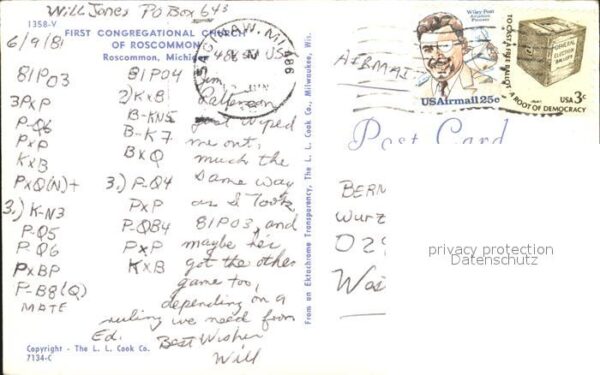 Will Jones PO Box 643
1358-V
6/9/81
FIRST CONGREGATIONAL CHURCH
OF ROSCOMMON
Roscommon, Michigan
48653 USA
SAGINAW, MI 486
81PO3
3PxP
P-Q6
PxP
KxB
PxQ(N)+
3.) K-N3
P-Q5
P-Q6
PxBP
P-B8(Q)
MATE
81PO4
2) KxB
B-KN5
B-K7
BxQ
3.) P-Q4
PxP
P-QB4
PxP
KxB
Jim
Patterson
just wiped
me out,
much the
same way
as I took
81PO3, and
maybe he's
got the other
game too,
depending on a
ruling we need from
Ed. Best Wishes
Will
Copyright - The L. L. Cook Co.
7134-C
From an Ektachrome Transparency, The L. L. Cook Co., Milwaukee, Wis.
AIRMAIL
Wiley Post
Aviation
Pioneer
US Airmail 25c
TO CAST A FREE BALLOT
A ROOT OF DEMOCRACY
GENERAL
ELECTION
BALLOTS
USA 3c
Post Card
BERN
Wurz
D 29
Was
privacy protection
Datenschutz